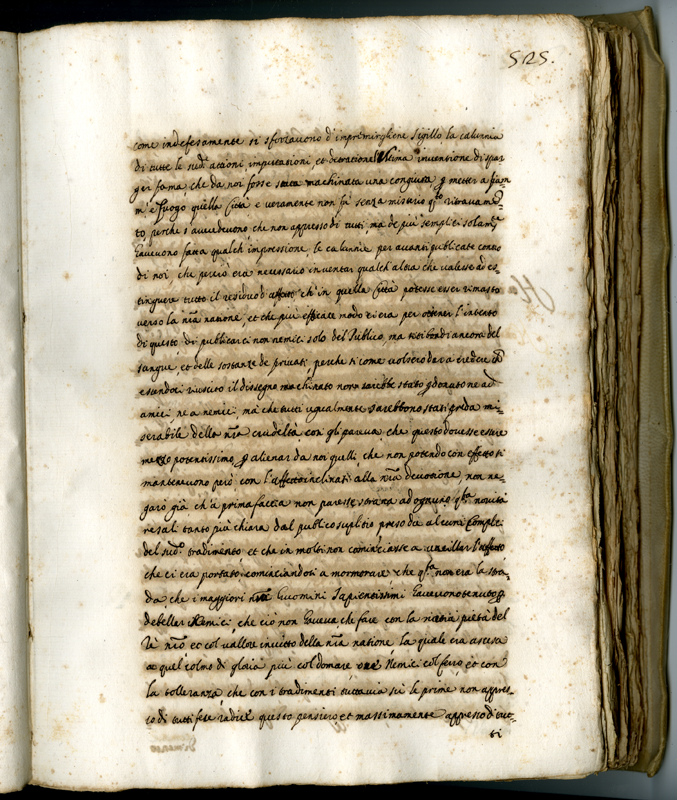 525.
come indefesamente si sforzavono d'imprimerghene sigillo la calunnia
di tutte le sud.e attioni imputationi et detrationi Ultima inventione di spar
ger fama che da noi fosse stata machinata una congiura p metter a fiam-
m'e fuogo quella Città e veramente non fù senza misterio q.to ritrovam.to
to perche s'avvedevono che non appresso di tutti, ma de più semplici solam.te
havevono fatta qualch'impressione le calunnie per avanti publicate contro
di noi, che perciò era necessario inventar qualch'altra che valesse ad es-
tinguere tutto il residuo d'affetto ch'in quella Città potesse esser rimasto
verso la nra natione, et che più efficace modo vi era per ottener l'intento
di questo di publicarci non nemici solo del Publico, ma sitibondi ancora del
sangue, et delle sostanze de privati, perche si come volsero dar a credere ch
essendoci riuscito il dissegno machinato non sarebbe stato p donato ne ad
amici ne a nemici, mà che tutti ugualmente sarebbono stati preda mi-
serabile della nra crudeltà con gli pareva che questo dovesse essere
mezzo potentissimo p alienar da noi quelli che non potendo con effetto si
mantenevono però con l'affetto inclinati alla nra devotione, non ne-
garò già ch'à prima faccia non paresse strana ad ogniuno q.ta novità
resali tanto più chiara dal publico suplitio preso de alcuni Complici
del sud.o tradimento et che in molti non cominciasse a
che ci era portato cominciandosi a mormorare che q.ta non era la stra-
da che i maggiori nri huomini sapientissimi havevono tenuto p
debellar i Nemici, che ciò non haveva che fare con la natia pietà del
Rè nro et col vallore invitto della nra natione la quale era ascesa
a quel colmo di gloria più col domare suoi Nemici col ferro et con
la tolleranza che con i tradimenti tuttavia sù le prime non appres-
so di tutti fece radice questo pensiero et massimamente appresso di tut-
ti